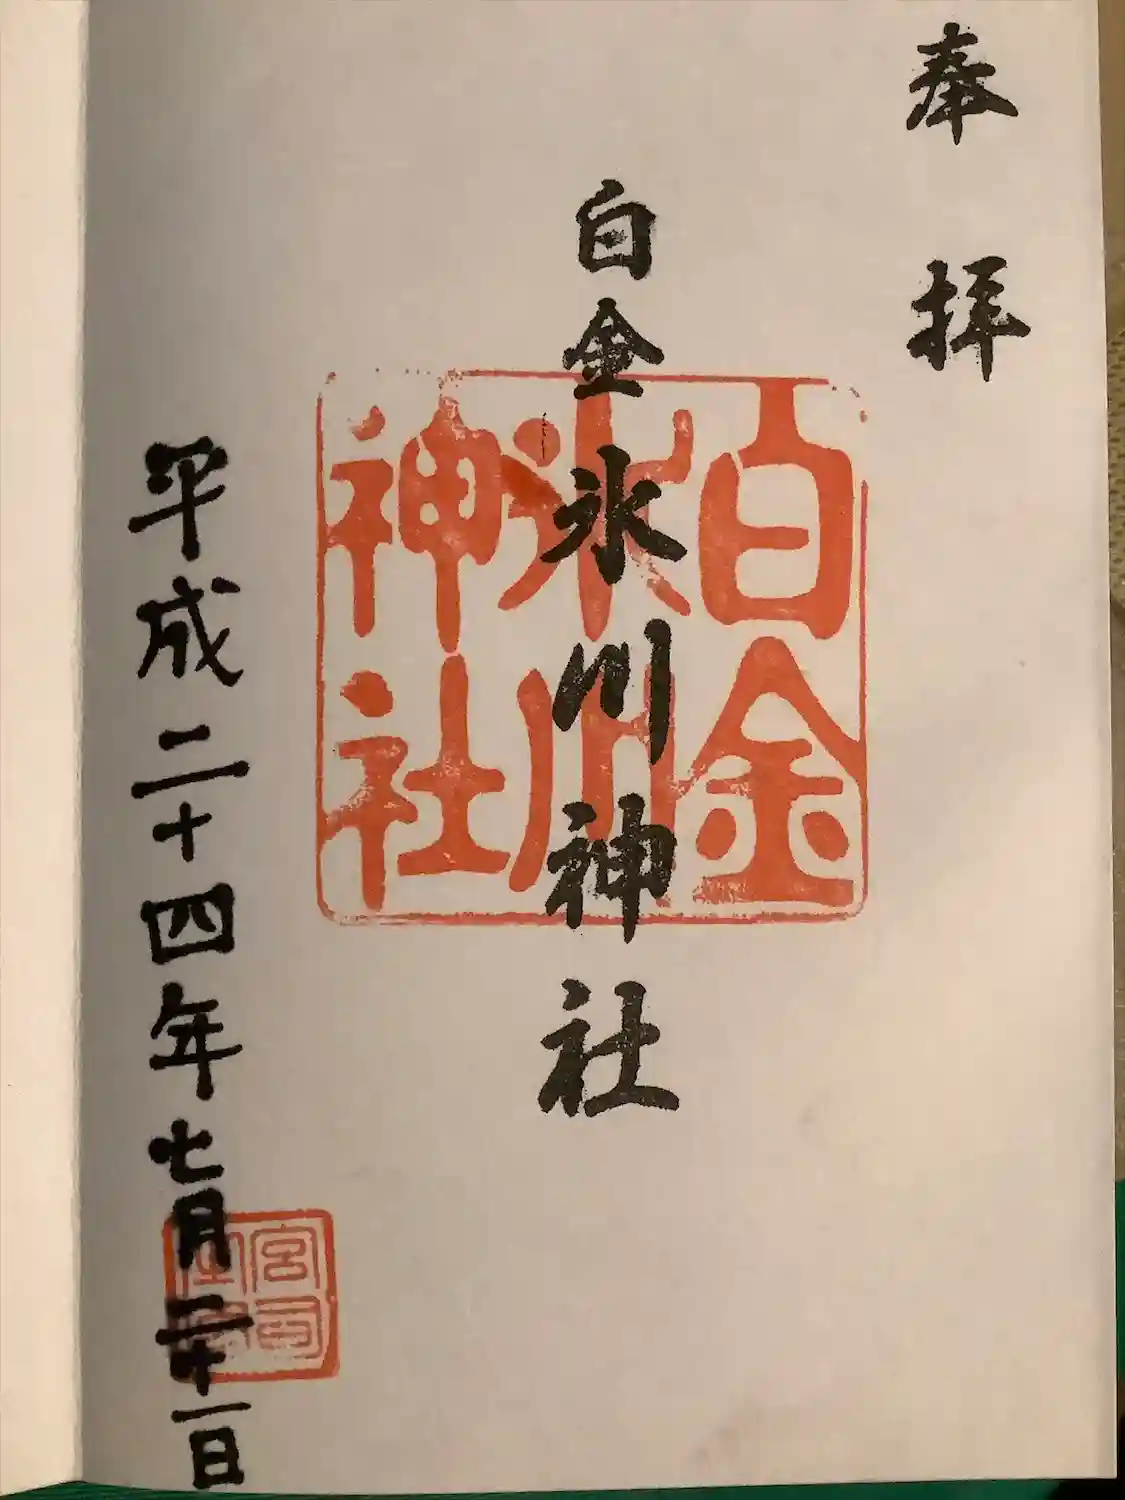 奉拝
白金氷川神社
白金
氷川
神社
平成二十四年七月二十一日
宮司